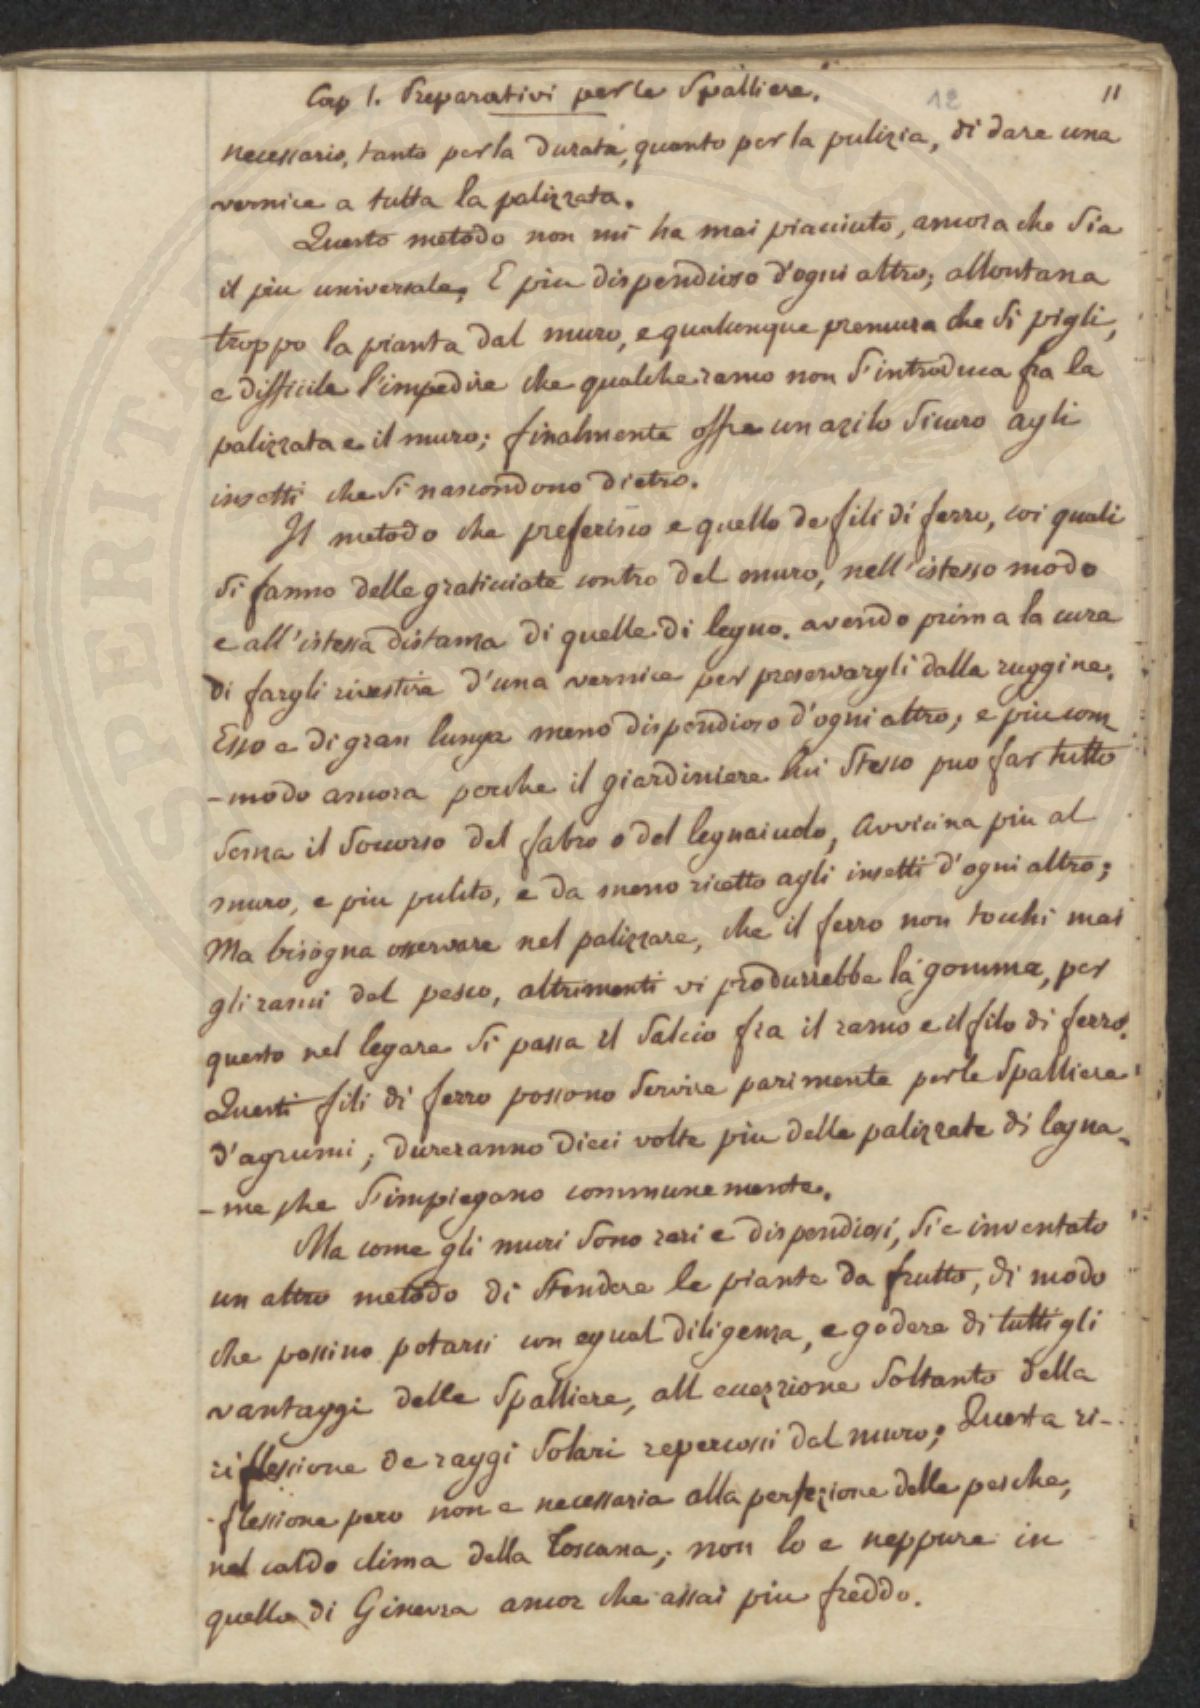 Cap 1. Preparativi per le Spalliere.
12
11
necessario, tanto per la durata, quanto per la pulizia, di dare una
vernice a tutta la palizzata.
Questo metodo non mi ha mai piacciuto, ancora che Sia
il piu universale, E piu dispendioso d'ogni altro; allontana
troppo la pianta dal muro, e qualunque premura che Si pigli,
e difficile l'impedire che qualche ramo non S'introduca fra la
palizzata e il muro; finalmente offre un azilo Sicuro agli
insetti che Si nascondono dietro.
Il metodo che preferisco e quello de fili di ferro, coi quali
Si fanno delle graticciate contro del muro, nell'istesso modo
e all'istessa distanza di quelle di legno. avendo prima la cura
di fargli rivestire d'una vernice per preservargli dalla ruggine.
Esso e di gran lunga meno dispendioso d'ogni altro; e piu com
-modo ancora perche il giardiniere lui Stesso puo far tutto
Senza il Soccorso del fabro o del legnaiuolo, Avvicina piu al
muro, e piu pulito, e da meno ricetto agli insetti d'ogni altro;
Ma bisogna osservare nel palizzare, che il ferro non tocchi mai
gli rami del pesco, altrimenti vi produrrebbe la gomma, per
questo nel legare Si passa il Salcio fra il ramo e il filo di ferro.
Questi fili di ferro possono Servire parimente per le Spalliere
d'agrumi; dureranno dieci volte piu delle palizzate di legna-
-me che S'impiegano communemente.
Ma come gli muri Sono rari e dispendiosi, Si e inventato
un altro metodo di Stendere le piante da frutto, di modo
che possino potarsi con egual diligenza, e godere di tutti gli
vantaggi delle Spalliere, all eccezzione Soltanto della
riflessione de raggi Solari repercossi dal muro; Questa ri-
-flessione pero non e necessaria alla perfezione delle pesche,
nel caldo clima della Toscana; non lo e neppure in
quello di Ginevra ancor che assai piu freddo.